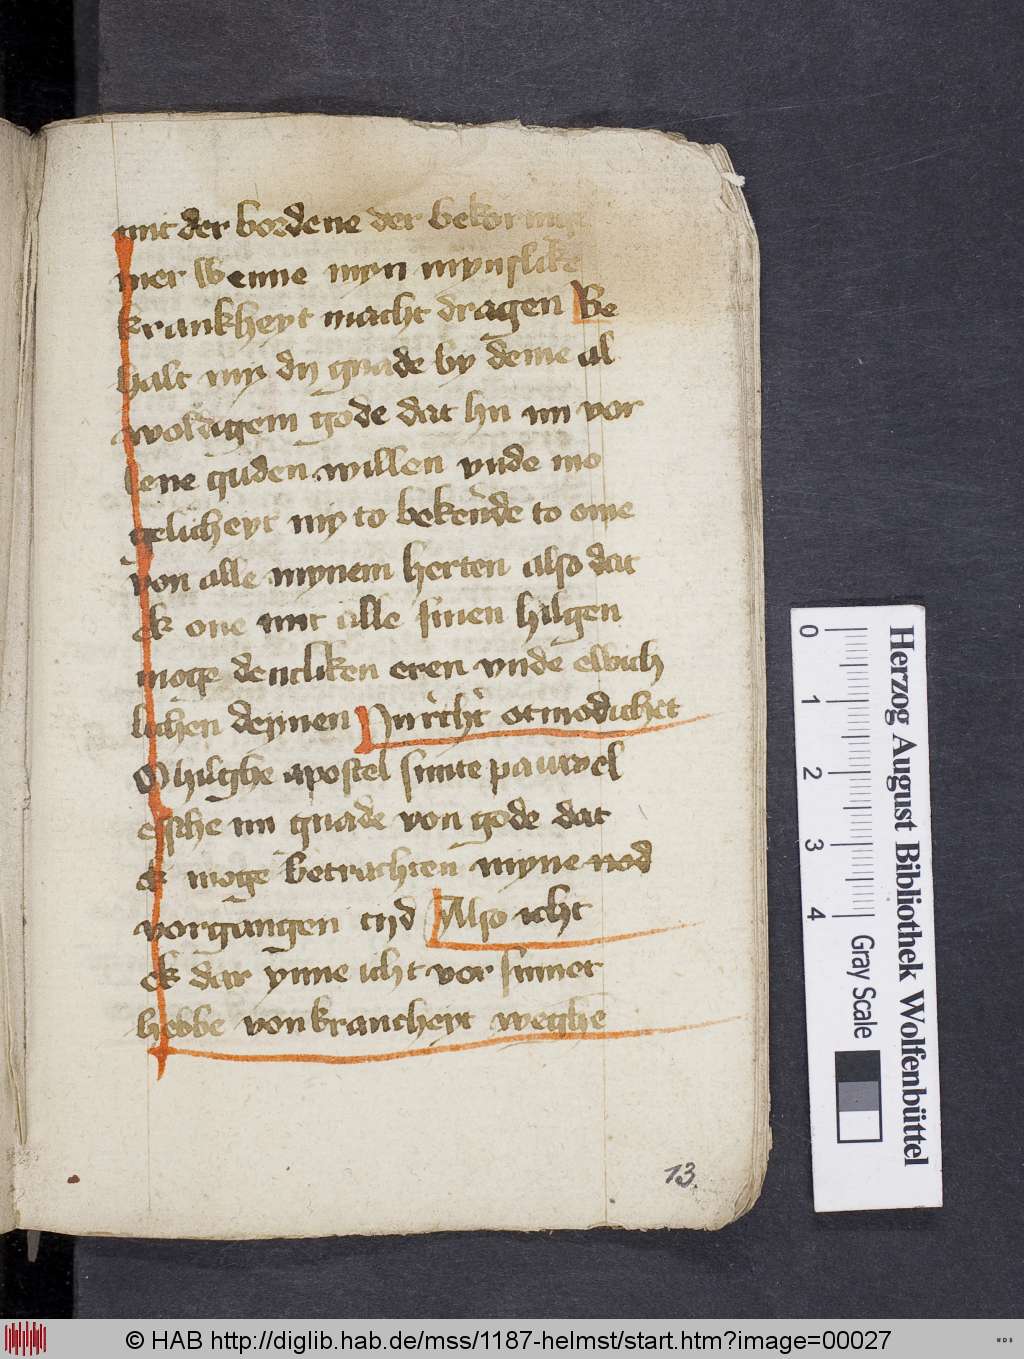 mit der bordene der bekoringe
mer wenne myn mynslike
krankheyt macht dragen Be
halt my dy gnade by deme al
woldigem gode dat hn mi vor
lene guden willen vnde mo
gelicheyt my to bekende to ome
von alle mynem herten also dat
ek one mit alle sinen hilgen
moge dencliken eren vnde ewich
lichen deynen otmodichet
O hilghe apostel sunte pauwel
esche mi gnade von gode dat
ek moge betrachten myne nod
vorgangen tijd Also icht
ek dar ynne icht vor sumet
hebbe von krancheyt weghe
13
0 1 2 3 4
Herzog August Bibliothek Wolfenbüttel
Gray Scale
© HAB http://diglib.hab.de/mss/1187-helmst/start.htm?image=00027
WDB